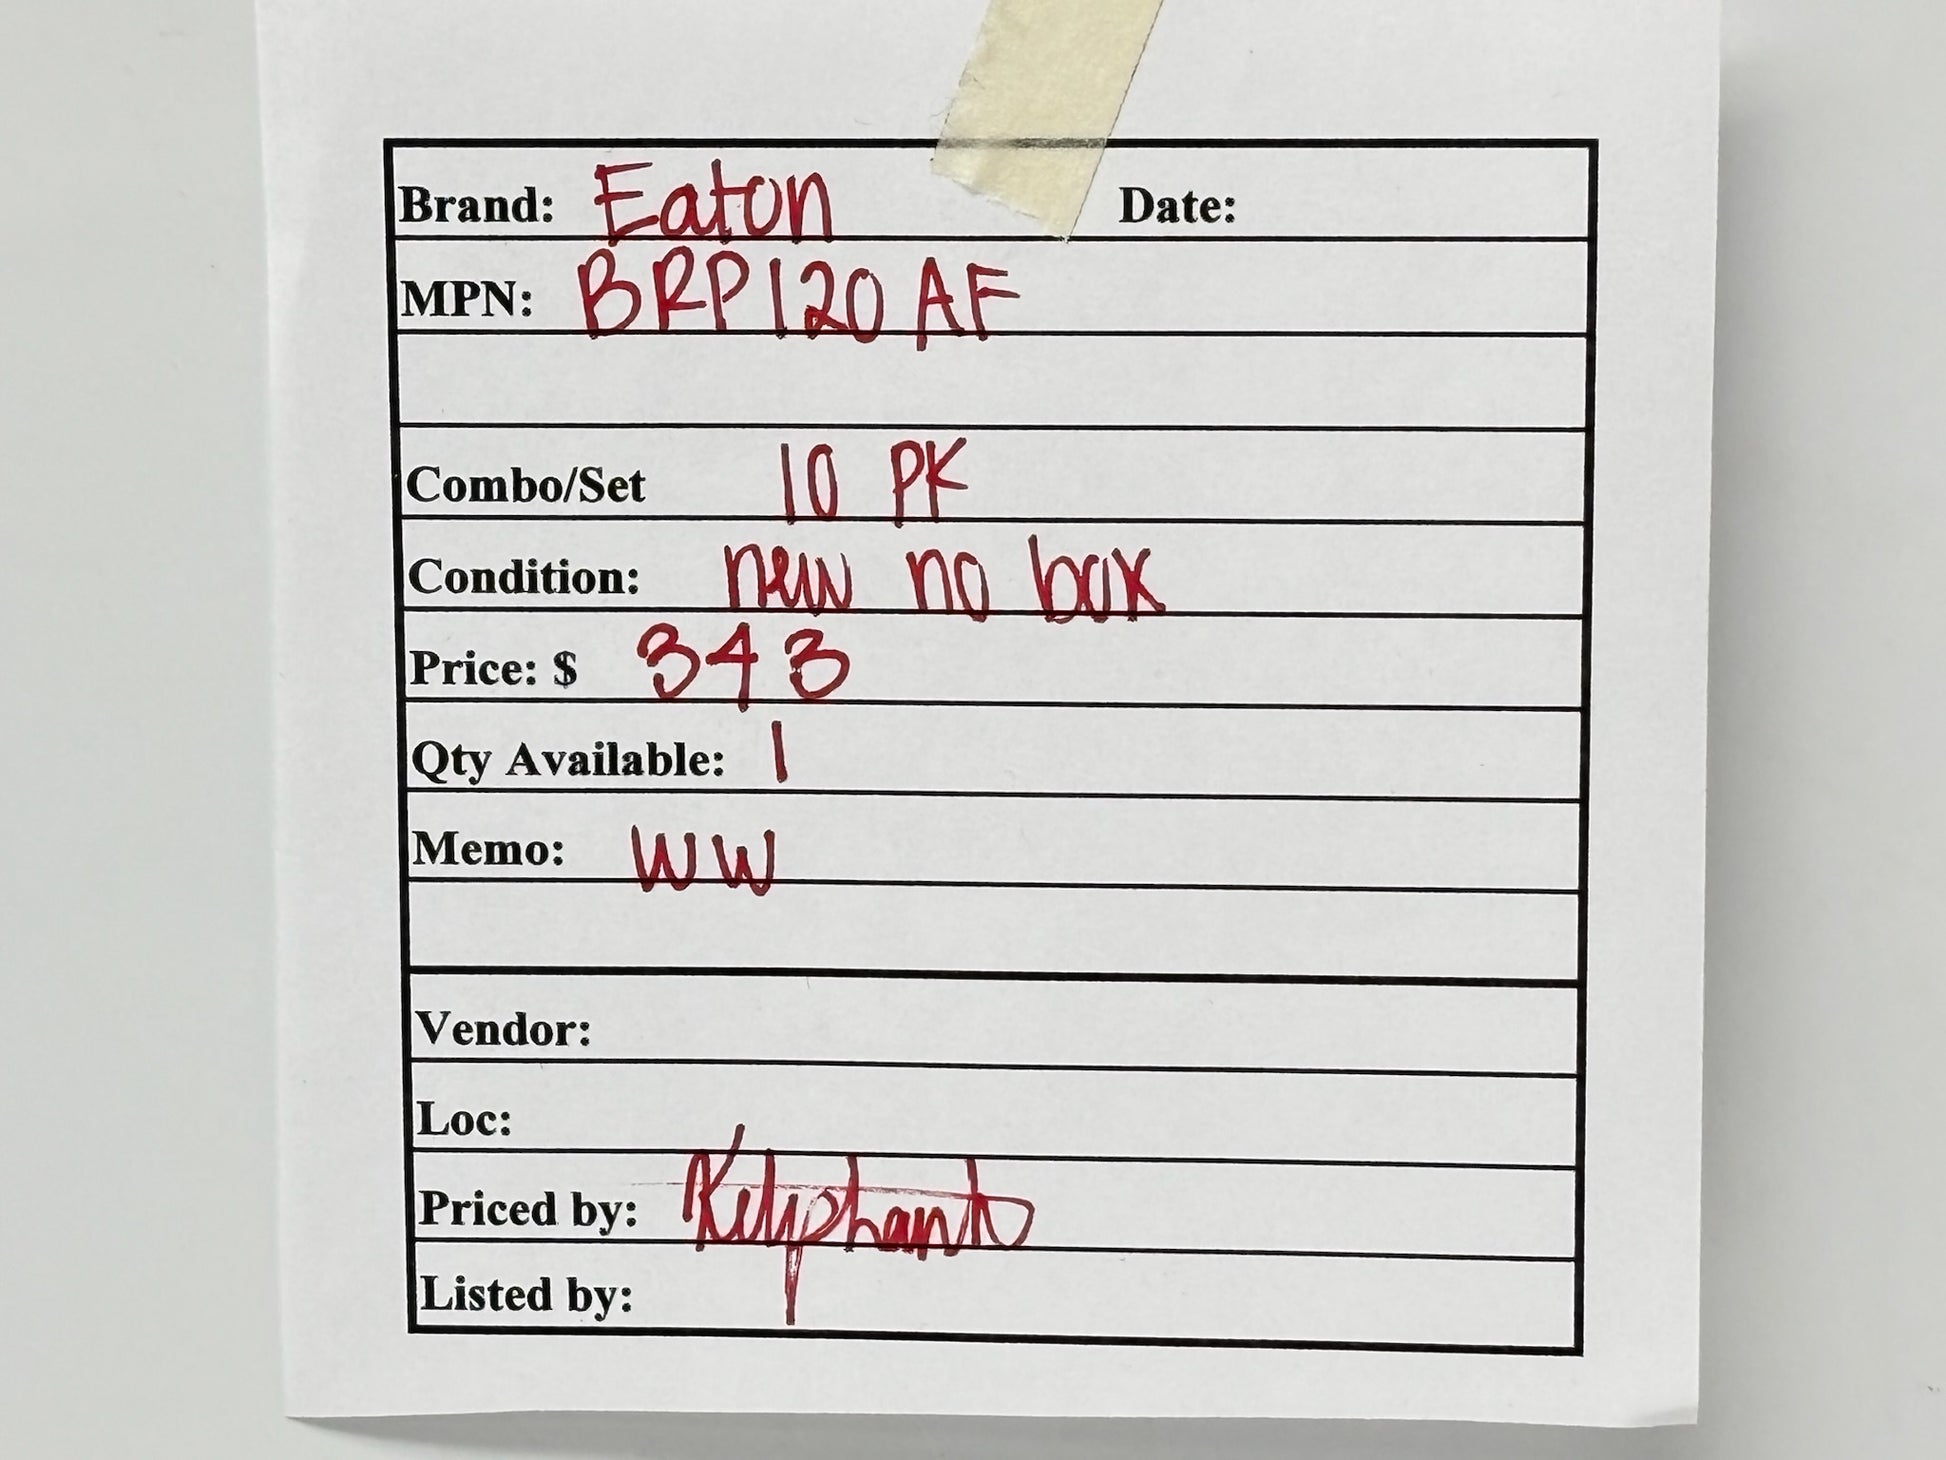 Brand: Eaton Date:
MPN: BRP120AF
Combo/Set 10 PK
Condition: new no box
Price: $ 343
Qty Available: 1
Memo: WW
Vendor:
Loc:
Priced by:
Listed by: